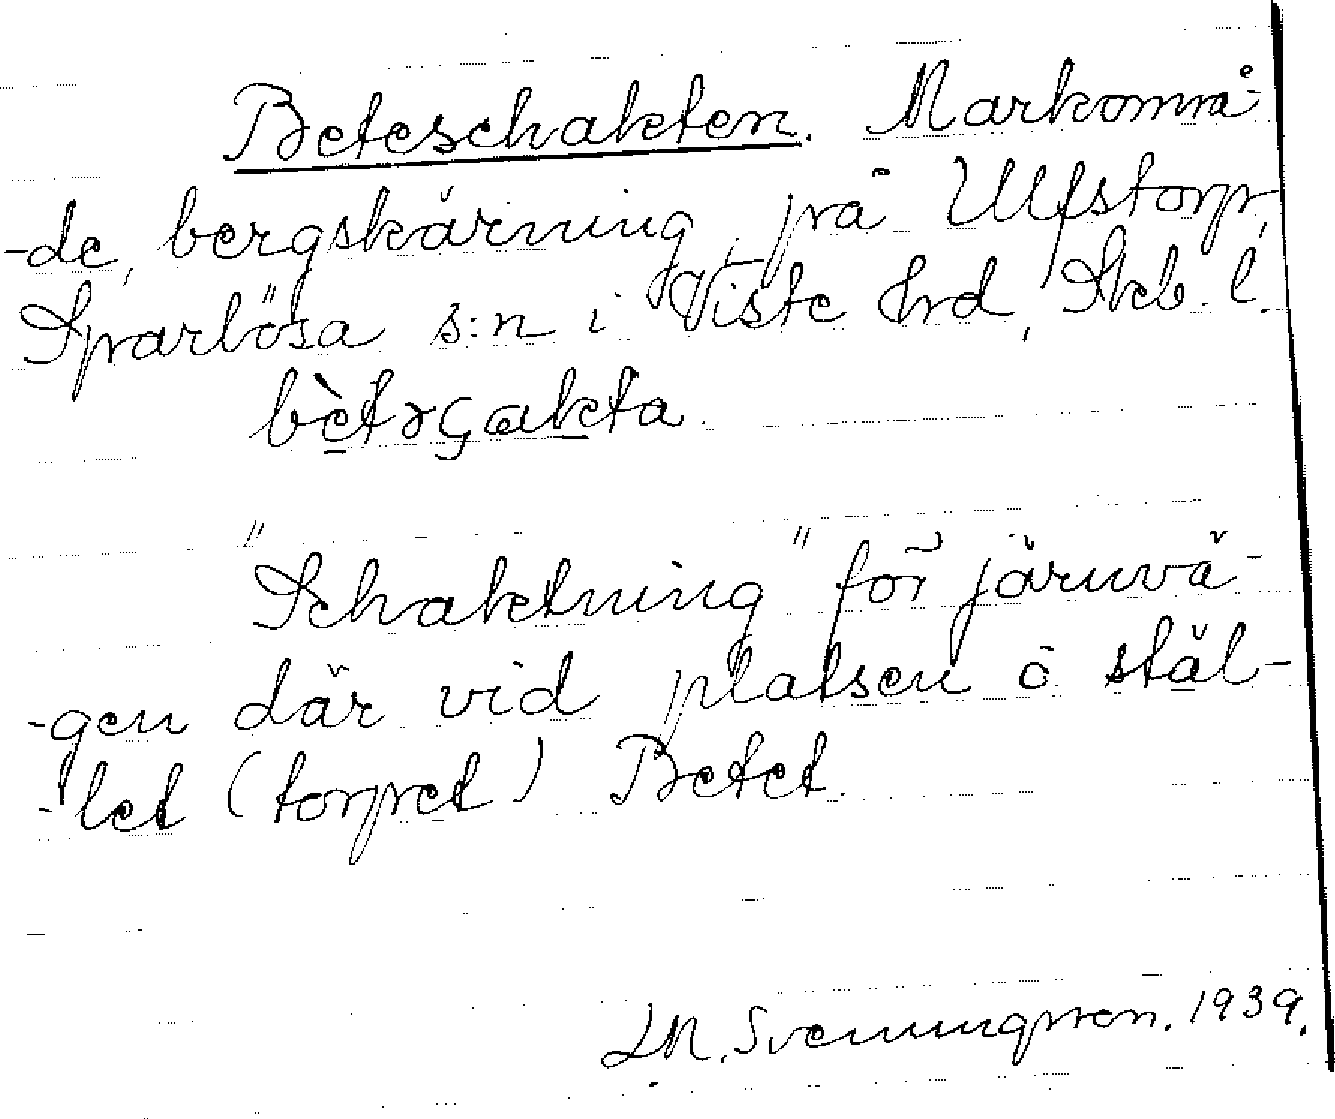 Beteschakten. Markområ-
-de, bergskärning, på Ulfstorp,
Sparlösa s:n i Viste hrd, Skb. l.
bètəςakta.
"Schaktning" för järnvä-
-gen där vid platsen ö stäl-
-let (torpet) Betet.
LM. Svenungsson. 1939.